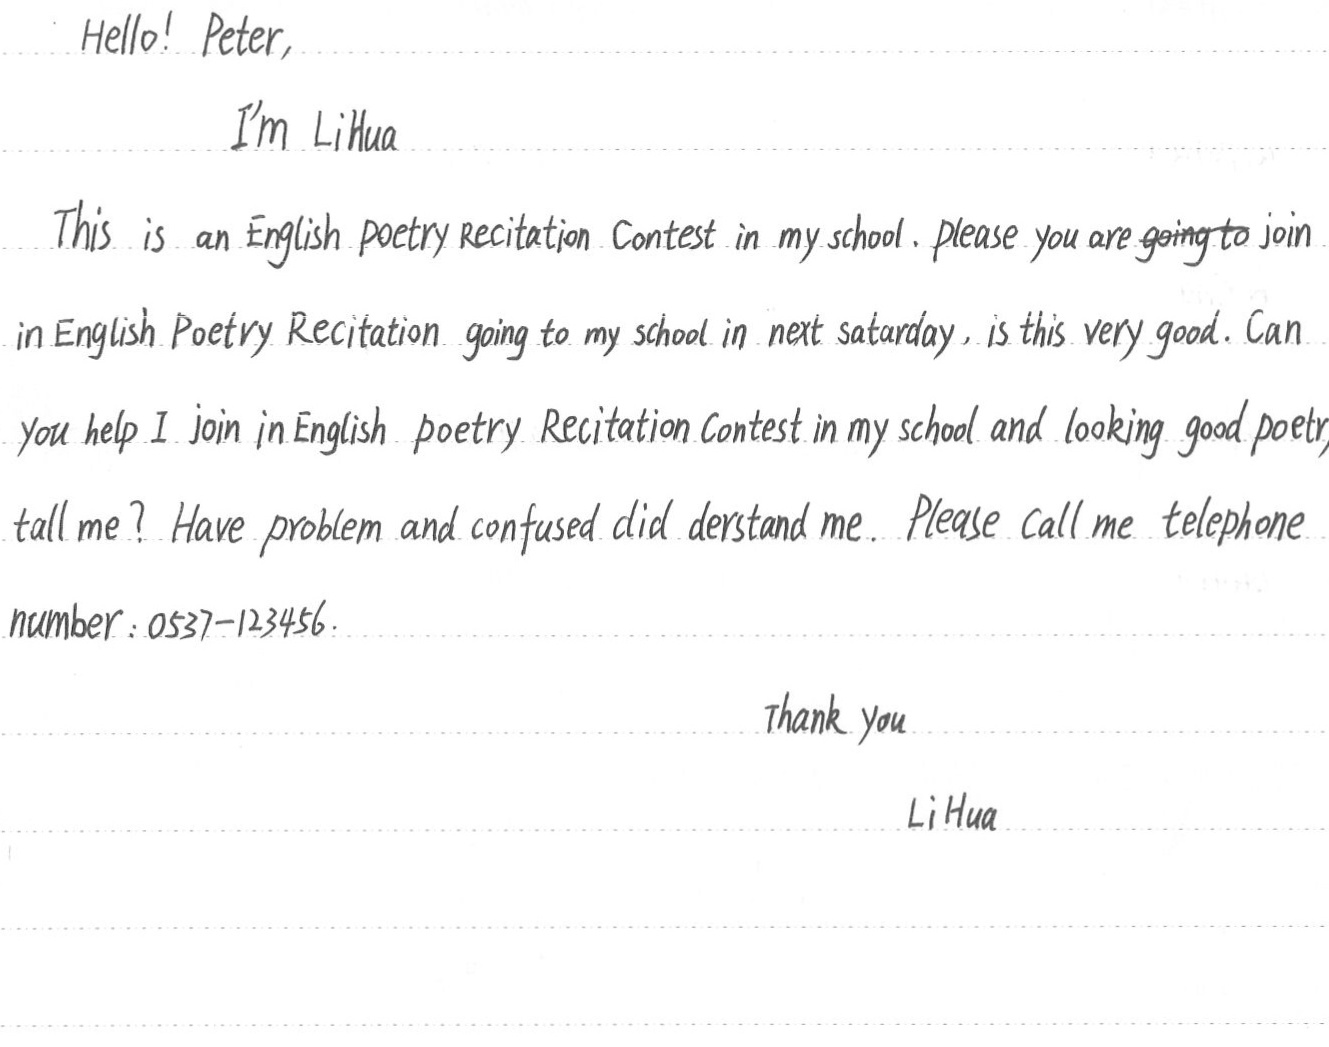 Hello! Peter,
I'm LiHua
This is an English poetry Recitation Contest in my school. please you are going to join
in English Poetry Recitation going to my school in next satarday, is this very good. Can
you help I join in English poetry Recitation Contest in my school and looking good poetry
tall me? Have problem and confused did derstand me. Please call me telephone
number: 0537-123456.
Thank you
Li Hua